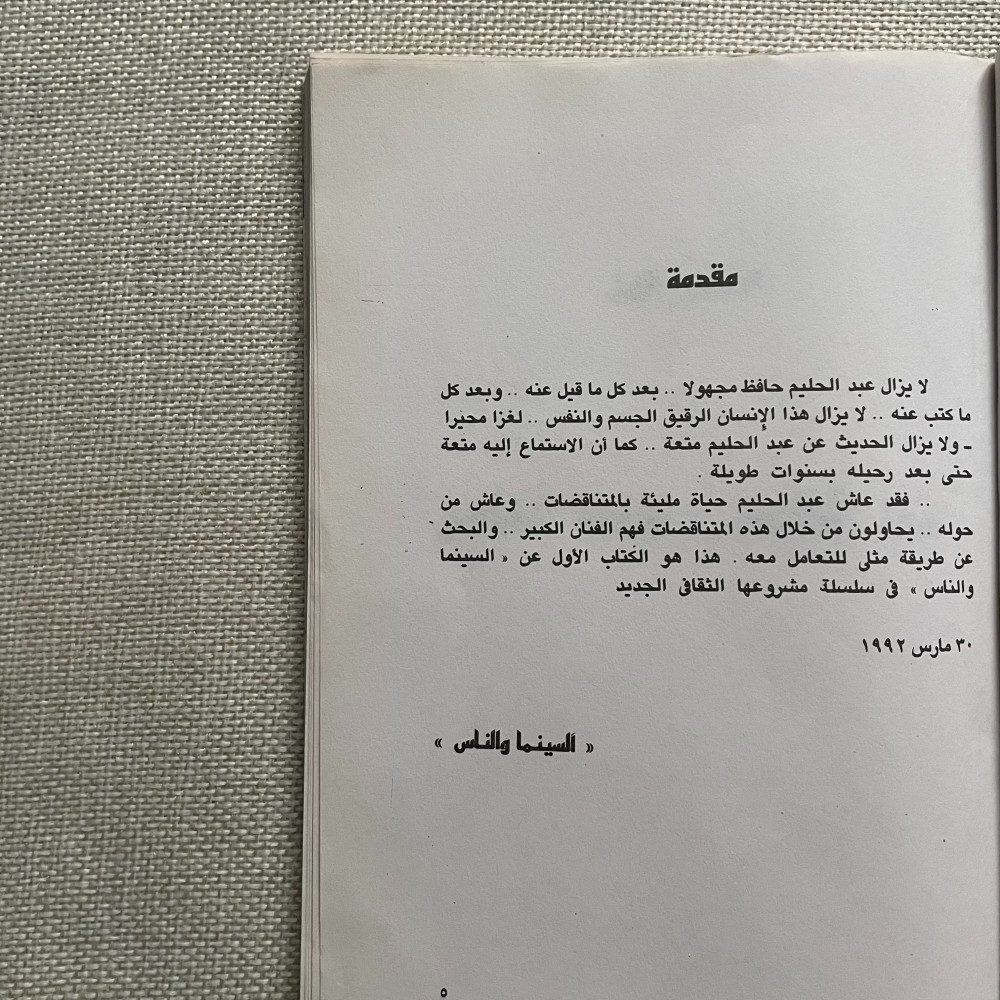 مقدمة
لا يزال عبد الحليم حافظ مجهولا .. بعد كل ما قيل عنه .. وبعد كل
ما كتب عنه .. لا يزال هذا الإنسان الرقيق الجسم والنفس .. لغزا محيرا
ـ ولا يزال الحديث عن عبد الحليم متعة .. كما أن الاستماع إليه متعة
حتى بعد رحيله بسنوات طويلة .
.. فقد عاش عبد الحليم حياة مليئة بالمتناقضات .. وعاش من
حوله .. يحاولون من خلال هذه المتناقضات فهم الفنان الكبير .. والبحث
عن طريقة مثلى للتعامل معه . هذا هو الكتاب الأول عن « السينما
والناس » فى سلسلة مشروعها الثقافى الجديد
٣٠ مارس ١٩٩٢
« السينما والناس »
٥